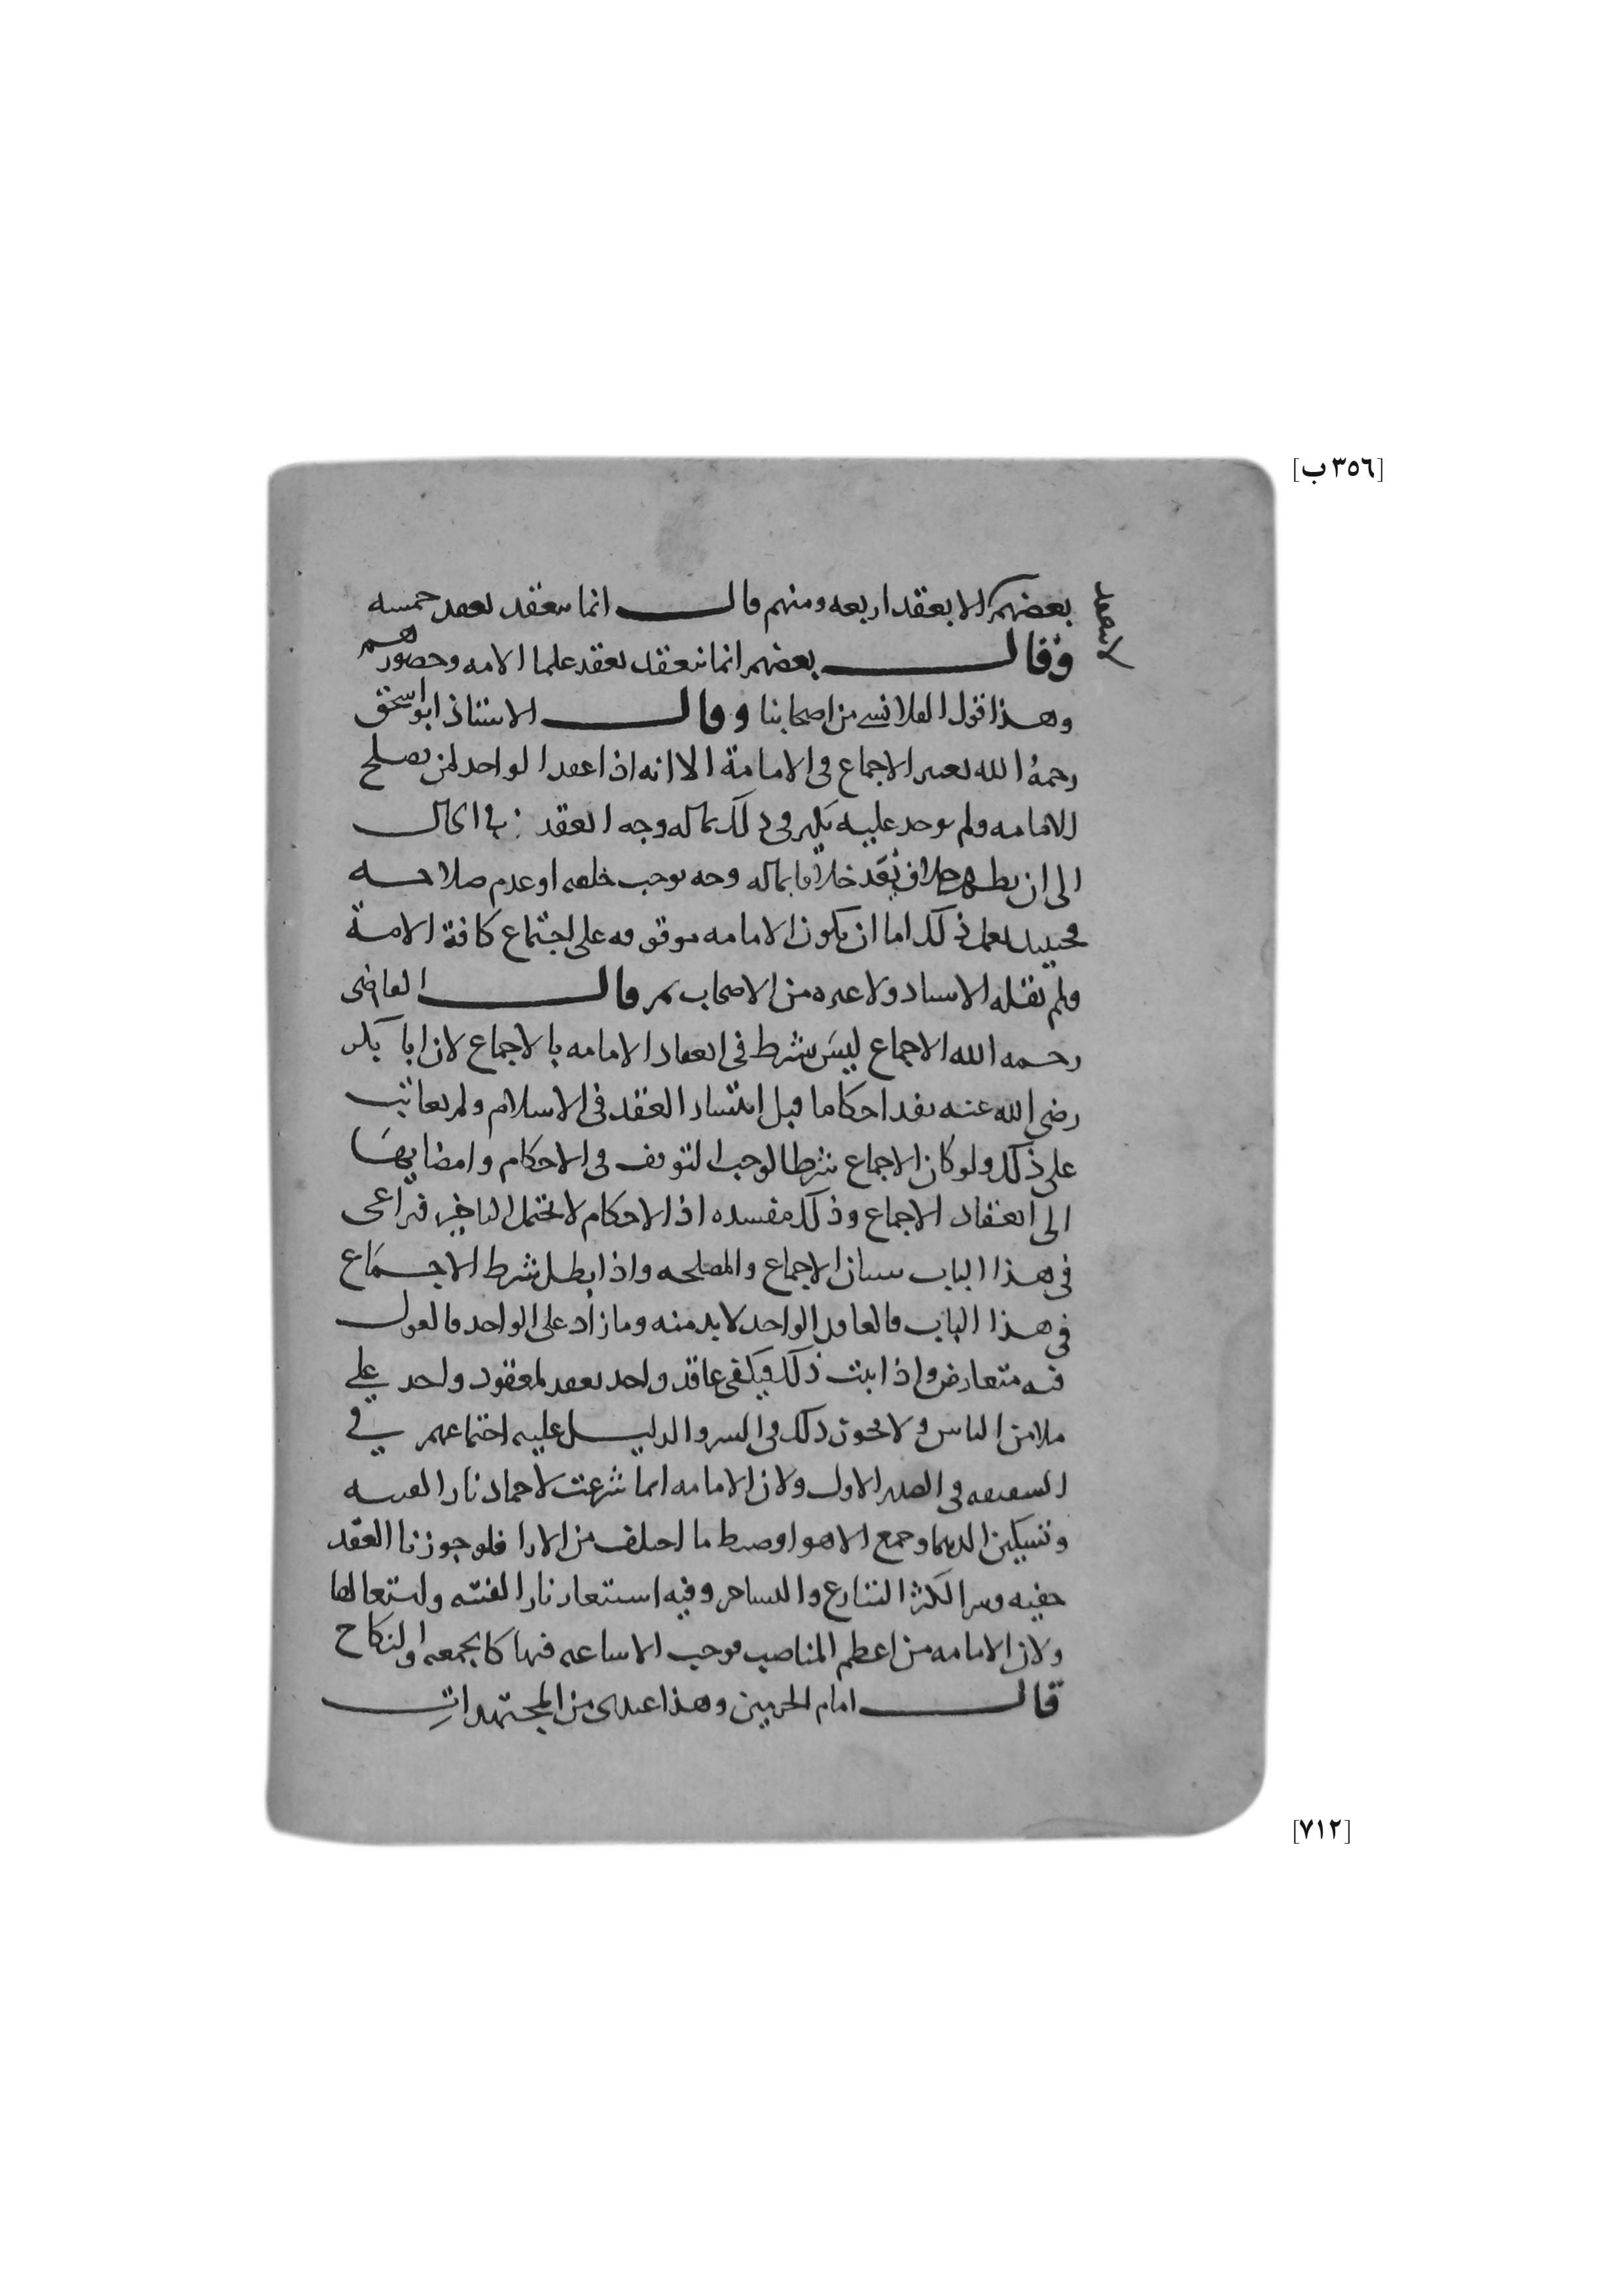 [٣٥٦ ب]
لا ينعقد
بعضهم الا بعقد اربعه ومنهم قال انما ينعقد بعقد خمسه
وقال بعضهم انما ينعقد بعقد علما الامه وحضورهم
وهذا قول القلانسي من اصحابنا وقال الاستاذ ابو اسحق
رحمه الله يعتبر الاجماع في الامامة الا انه اذا عقد الواحد لمن يصلح
للامامه ولم يوجد عليه نكير في ذلك بماله وجه العقد في الحال
الى ان يظهر خلاف خلافا بماله وجه يوجب خلعه او عدم صلاحه
فحينئذ يعمل ذلك اما ان يكون الامامه موقوفه على اجتماع كافة الامة
ولم يقله الاستاد ولا غيره من الاصحاب ثم قال القاضى
رحمه الله الاجماع ليس بشرط في انعقاد الامامه بالاجماع لان ابا بكر
رضي الله عنه نفد احكاما قبل انتشار العقد في الاسلام ولم يعاتب
على ذلك ولو كان الاجماع شرطا لوجب التوقف في الاحكام وامضايها
الى انعقاد الاجماع وذلك مفسده اذ الاحكام لا تحتمل التاخير فتراعى
في هذا الباب الاجماع والمصلحه واذا بطل شرط الاجماع
في هذا الباب فالعاقد الواحد لا بد منه وما زاد على الواحد فالقول
فيه متعارض واذا ثبت ذلك فيكفي عاقد واحد يعقد لمعقود واحد علي
ملا من الناس ولا يجوز ذلك في السر والدليل عليه اجتماعهم في
السقيفه في الصدر الاول ولان الامامه انما شرعت لاخماد نار الفتنه
وتسكين الدهما وجمع الاهوا وضبط ما اختلف من الارا فلو جوزنا العقد
خفيه وسرا لكثر التنازع والتشاجر وفيه استعار نار الفتنه واشتعالها
ولان الامامه من اعظم المناصب فوجب الاشاعه فيها كالجمعه والنكاح
قال امام الحرمين وهذا عندى من المجتهدات
[٧١٢]